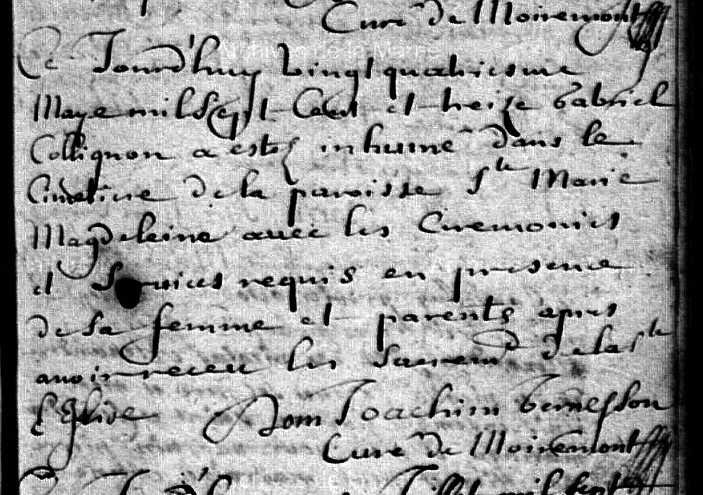 Curé de Moiremont
Ce Jourd'huy vingt quatriesme
Maye mil Sept Cent et treize Gabriel
Collignon a esté inhumé dans le
Cimetiere de la paroisse Ste Marie
Magdeleine avec les Ceremonies
et Services requis en presence
de sa femme et parents apres
avoir receu les Sacremt de la Ste
Eglise Dom Joachim
Curé de Moiremont